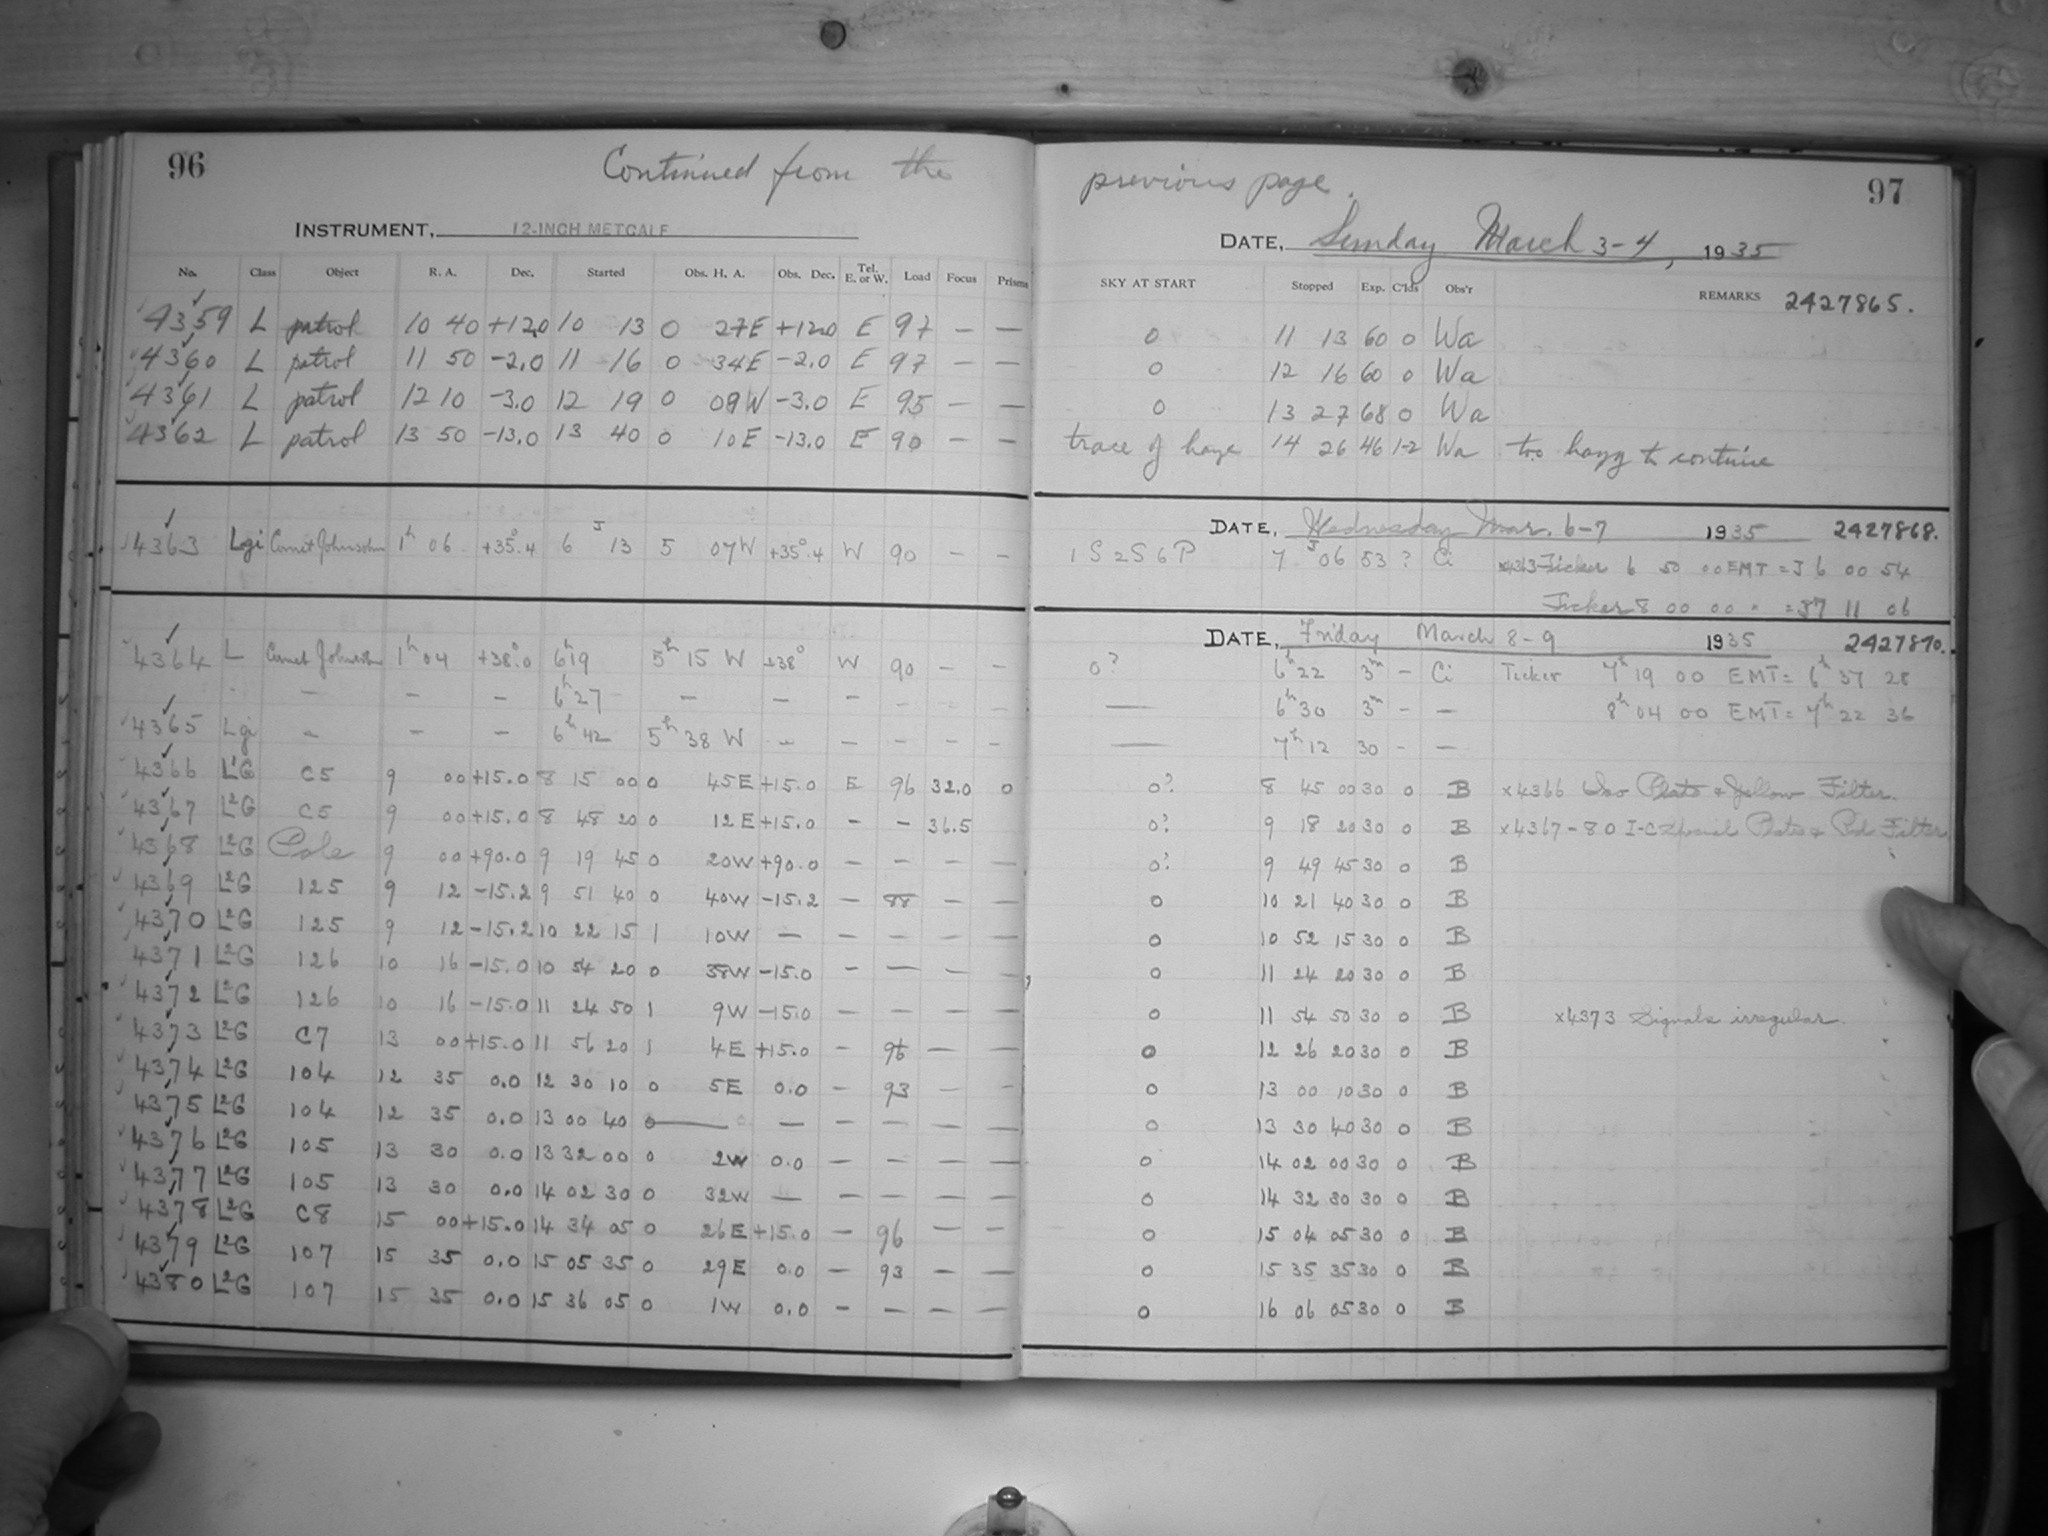 96 Continued from the previous page. 97
INSTRUMENT, 12-INCH METCALF DATE, Sunday March 3-4, 1935
No. Class Object R. A. Dec. Started Obs. H. A. Obs. Dec. Tel. E. or W. Load Focus Prisms SKY AT START Stopped Exp. C'lds Obs'r REMARKS 2427865.
4359 L patrol 10 40 +12.0 10 13 0 27E +12.0 E 97 — — 0 11 13 60 0 Wa
4360 L patrol 11 50 -2.0 11 16 0 34E -2.0 E 97 — — 0 12 16 60 0 Wa
4361 L patrol 12 10 -3.0 12 19 0 09W -3.0 E 95 — — 0 13 27 68 0 Wa
4362 L patrol 13 50 -13.0 13 40 0 10E -13.0 E 90 — — trace of haze 14 26 46 1-2 Wa too hazy to continue
DATE, Wednesday Mar. 6-7 1935 2427868.
4363 Lgi Comet Johnson 1h 06 +35°.4 6 J 13 5 07W +35°.4 W 90 — — 1 S 2 S 6 P 7 J 06 53 ? Ci x4363-Ticker 6 50 00 EMT = J 6 00 54
Ticker 8 00 00 " = J7 11 06
DATE, Friday March 8-9 1935 2427870.
4364 L Comet Johnson 1h 04 +38°.0 6h19 5h 15 W +38° W 90 — — 0? 6h 22 3m — Ci Ticker 7h 19 00 EMT = 6h 37 28
— — — 6h 27 — — — — — — — 6h 30 3m — — 8h 04 00 EMT = 7h 22 36
4365 Lgi — — — 6h 42 5h 38 W — — — — — — 7h 12 30 — —
4366 L1G C5 9 00 +15.0 8 15 00 0 45E +15.0 E 96 32.0 0 0? 8 45 00 30 0 B x4366 Iso Plate & Yellow Filter.
4367 L2G C5 9 00 +15.0 8 48 20 0 12E +15.0 — — 36.5 0? 9 18 20 30 0 B x4367-80 I-C Special Plates & Red Filter
4368 L2G Pole 9 00 +90.0 9 19 45 0 20W +90.0 — — — — 0? 9 49 45 30 0 B
4369 L2G 125 9 12 -15.2 9 51 40 0 40W -15.2 — 88 — — 0 10 21 40 30 0 B
4370 L2G 125 9 12 -15.2 10 22 15 1 10W — — — — — 0 10 52 15 30 0 B
4371 L2G 126 10 16 -15.0 10 54 20 0 38W -15.0 — — — — 0 11 24 20 30 0 B
4372 L2G 126 10 16 -15.0 11 24 50 1 9W -15.0 — — — — 0 11 54 50 30 0 B x4373 Signals irregular.
4373 L2G C7 13 00 +15.0 11 56 20 1 4E +15.0 — 96 — — 0 12 26 20 30 0 B
4374 L2G 104 12 35 0.0 12 30 10 0 5E 0.0 — 93 — — 0 13 00 10 30 0 B
4375 L2G 104 12 35 0.0 13 00 40 0 — — — — — — 0 13 30 40 30 0 B
4376 L2G 105 13 30 0.0 13 32 00 0 2W 0.0 — — — — 0 14 02 00 30 0 B
4377 L2G 105 13 30 0.0 14 02 30 0 32W — — — — — 0 14 32 30 30 0 B
4378 L2G C8 15 00 +15.0 14 34 05 0 26E +15.0 — 96 — — 0 15 04 05 30 0 B
4379 L2G 107 15 35 0.0 15 05 35 0 29E 0.0 — 93 — — 0 15 35 35 30 0 B
4380 L2G 107 15 35 0.0 15 36 05 0 1W 0.0 — — — — 0 16 06 05 30 0 B